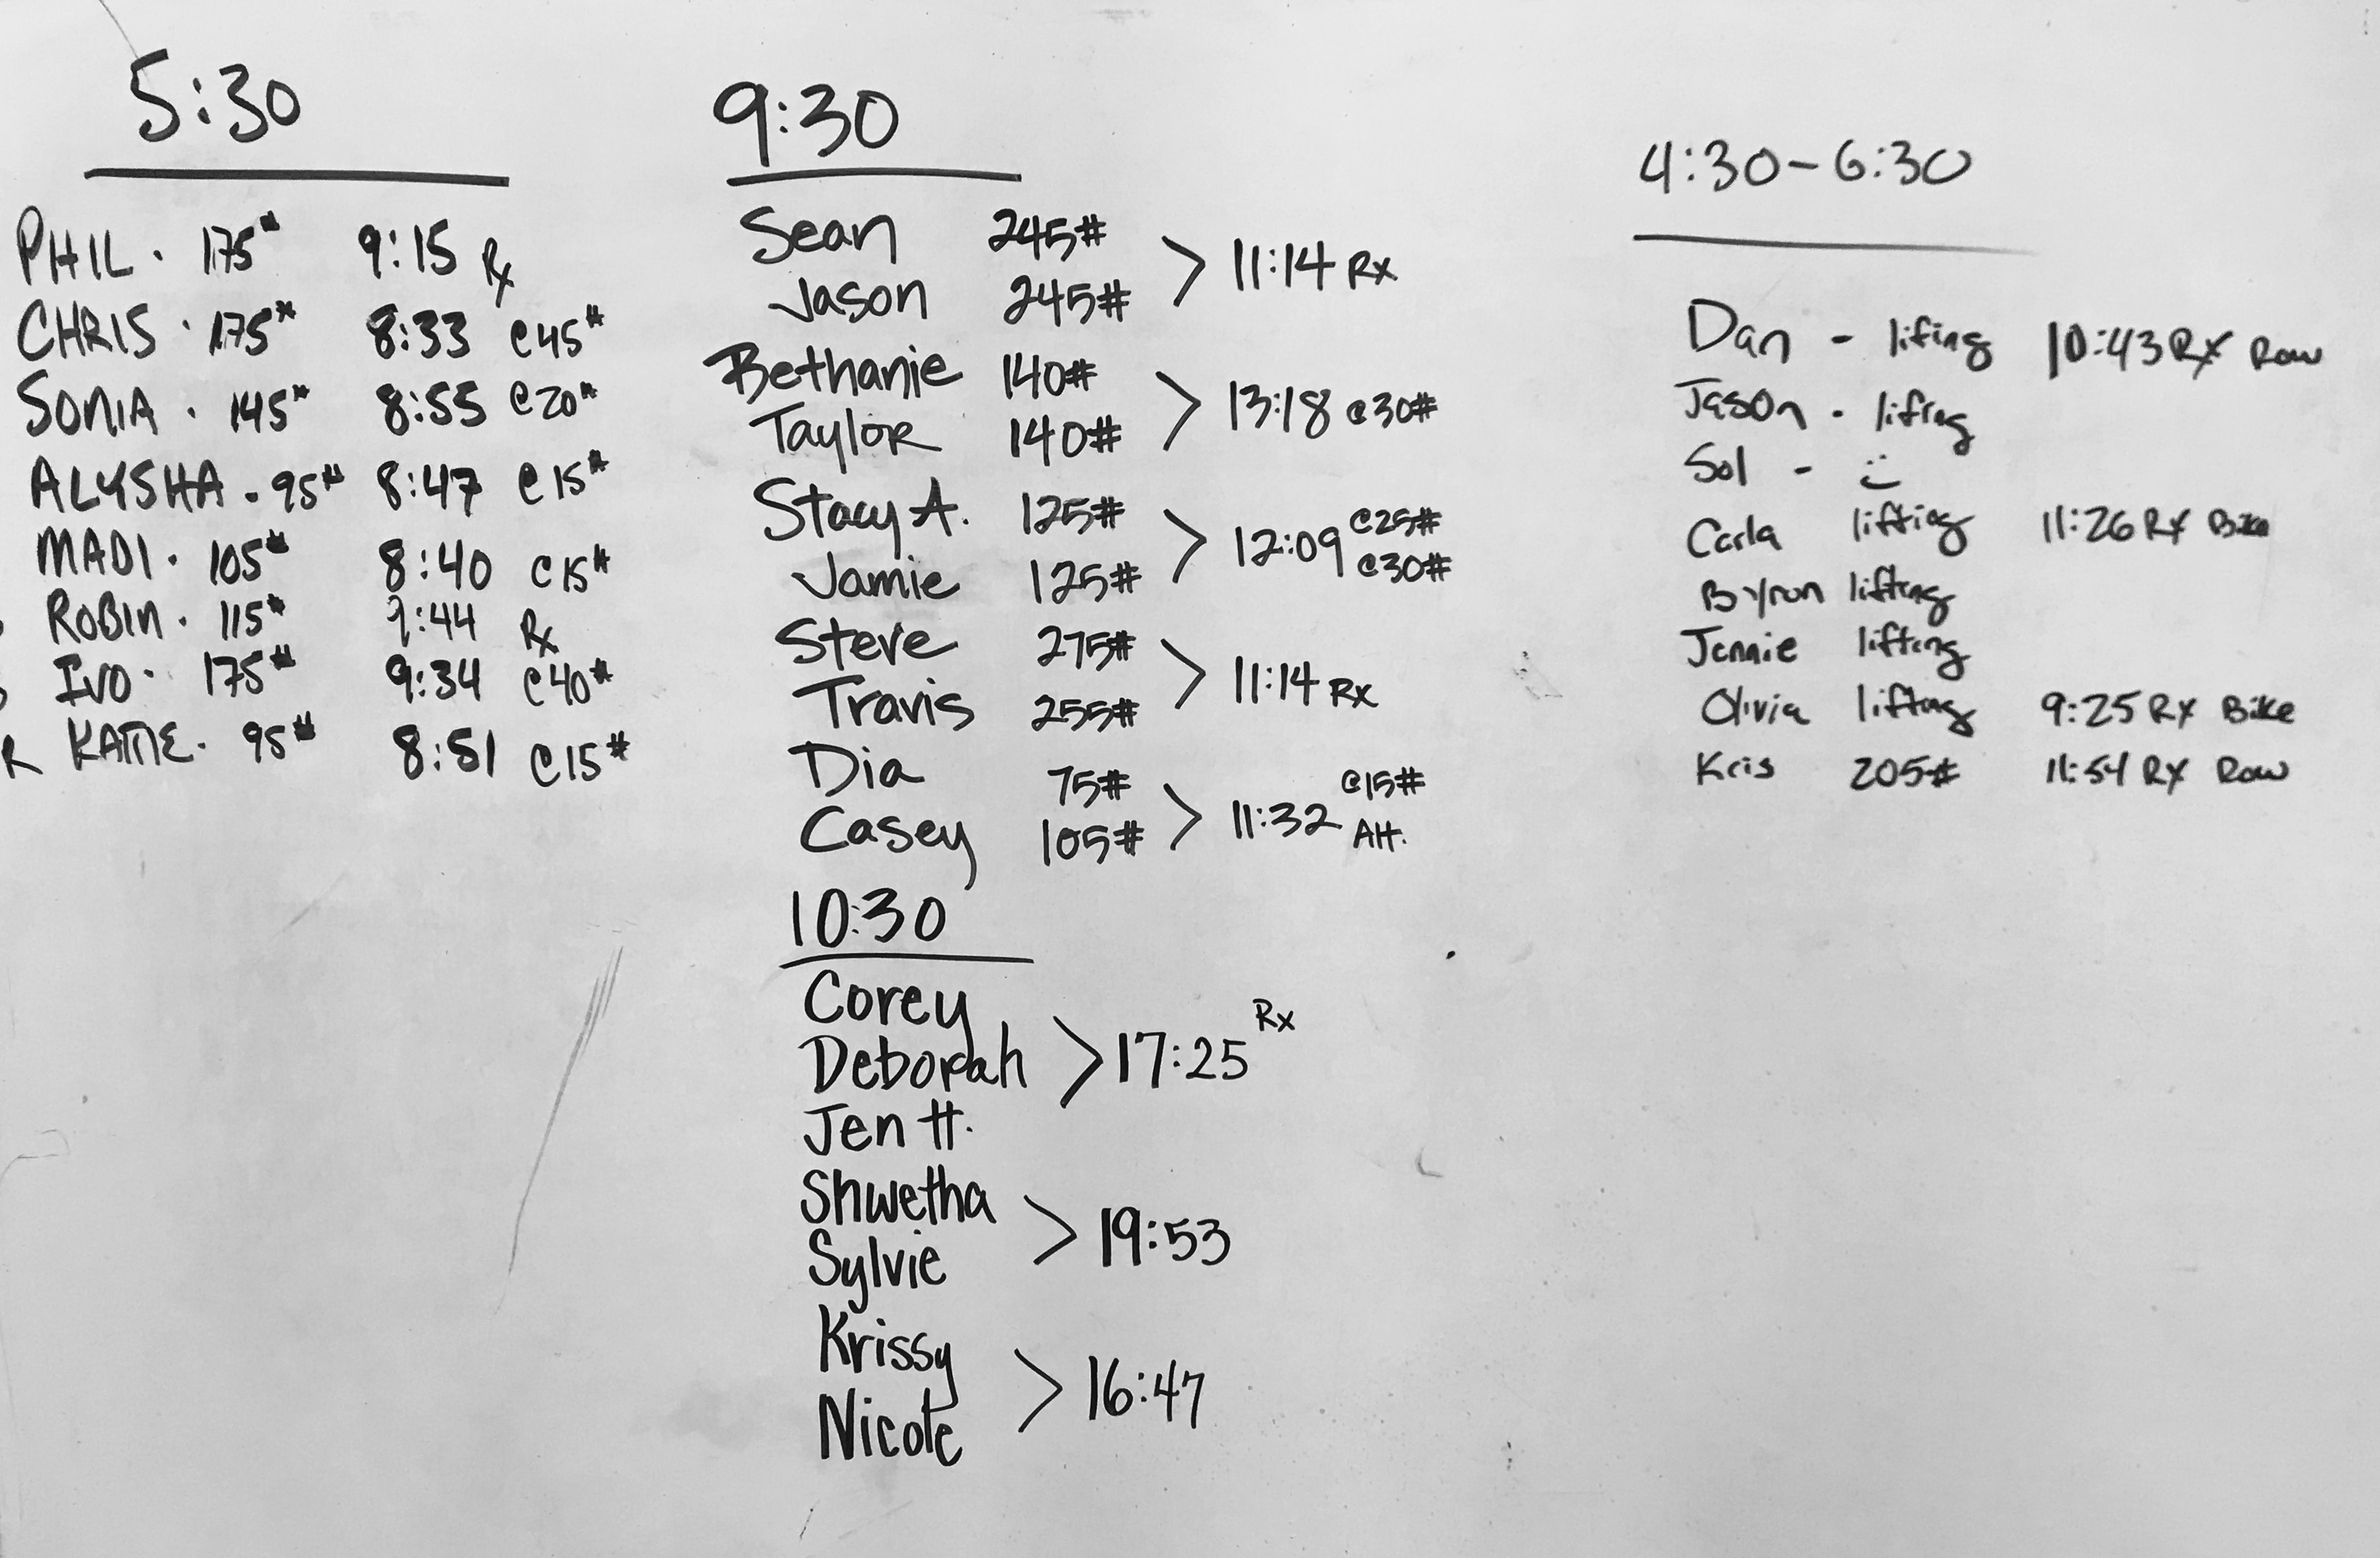 5:30
PHIL . 175# 9:15 Rx
CHRIS . 175# 8:33 @45#
SONIA . 145# 8:55 @20#
ALYSHA . 95# 8:47 @15#
MADI . 105# 8:40 @15#
ROBIN . 115# 9:44 Rx
IVO . 175# 9:34 @40#
R KATIE . 95# 8:51 @15#
9:30
Sean 245#
Jason 245# > 11:14 Rx
Bethanie 140#
Taylor 140# > 13:18 @30#
Stacy A. 125# @25#
Jamie 125# > 12:09 @30#
Steve 275#
Travis 255# > 11:14 Rx
Dia 75# @15#
Casey 105# > 11:32 AH.
10:30
Corey
Deborah > 17:25 Rx
Jen H.
Shwetha
Sylvie > 19:53
Krissy
Nicole > 16:47
4:30-6:30
Dan - lifing 10:43 Rx Row
Jason - lifing
Sol - :)
Carla lifting 11:26 Rx Bike
Byron lifting
Jennie lifting
Olivia lifting 9:25 Rx Bike
Kris 205# 11:54 Rx Row